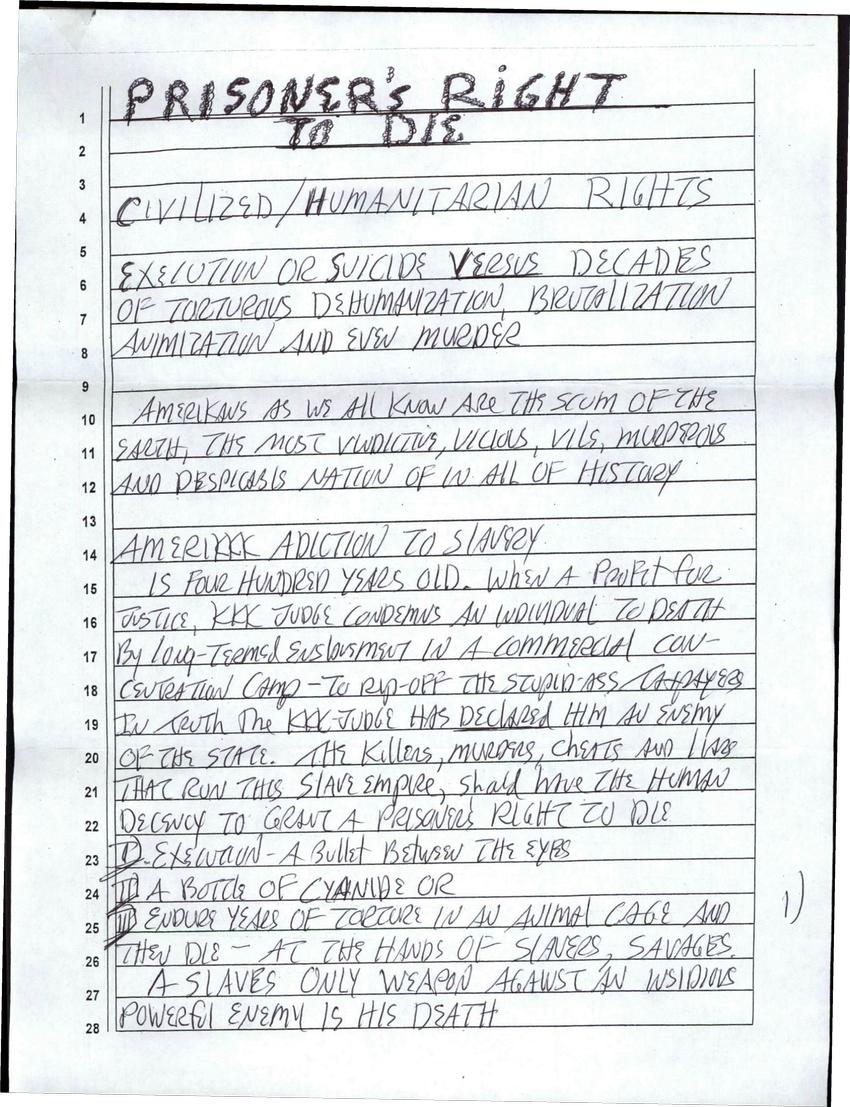 PRISONER'S RIGHT
1
TO DIE
2
3
CIVILIZED/HUMANITARIAN RIGHTS
4
5
EXECUTION OR SUICIDE VERSUS DECADES
6
OF TORTUROUS DEHUMANIZATION, BRUTALIZATION
7
ANIMIZATION AND EVEN MURDER
8
9
AMERIKANS AS WE All KNOW ARE THE SCUM OF THE
10
EARTH, THE MOST VINDICTIVE, VICIOUS, VILE, MURDEROUS
11
AND DESPICABLE NATION OF IN All OF HISTORY
12
13
AMERIKKK ADICTION TO SLAVERY
14
IS FOUR HUNDRED YEARS OLD. WHEN A PROFIT FOR
15
JUSTICE, KKK JUDGE CONDEMNS AN INDIVIDUAL TO DEATH
16
By long-TERMED ENSLAVEMENT IN A COMMERCIAL CON-
17
CENTRATION CAMP - TO RIP-OFF THE STUPID-ASS TAXPAYERS
18
IN TRUTH THE KKK-JUDGE HAS DECLARED HIM AN ENEMY
19
OF THE STATE. THE Killers, MURDERS, CHEATS AND LIARS
20
THAT RUN THIS SLAVE EMPIRE, Should have THE HUMAN
21
DECENCY TO GRANT A PRISONERS RIGHT TO DIE
22
I). EXECUTION - A Bullet BETWEEN THE EYES
23
II) A BOTTLE OF CYANIDE OR
24
III) ENDURE YEARS OF TORTURE IN AN ANIMAL CAGE AND
25
THEN DIE - AT THE HANDS OF SLAVERS, SAVAGES.
26
A SLAVES ONLY WEAPON AGAINST AN INSIDIOUS
27
POWERFUL ENEMY IS HIS DEATH
28
1)